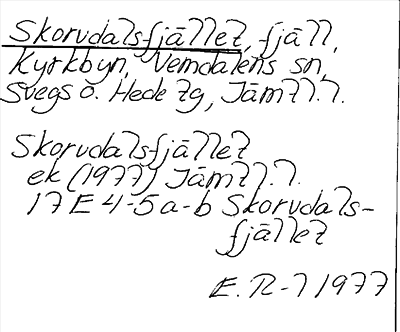 Skorvdalsfjället, fjäll,
Kyrkbyn, Vemdalens sn,
Svegs o. Hede tg, Jämtl.l.
Skorvdalsfjället
ek (1977) Jämtl.l.
17 E 4-5 a-b Skorvdals-
fjället
E. R-l 1977